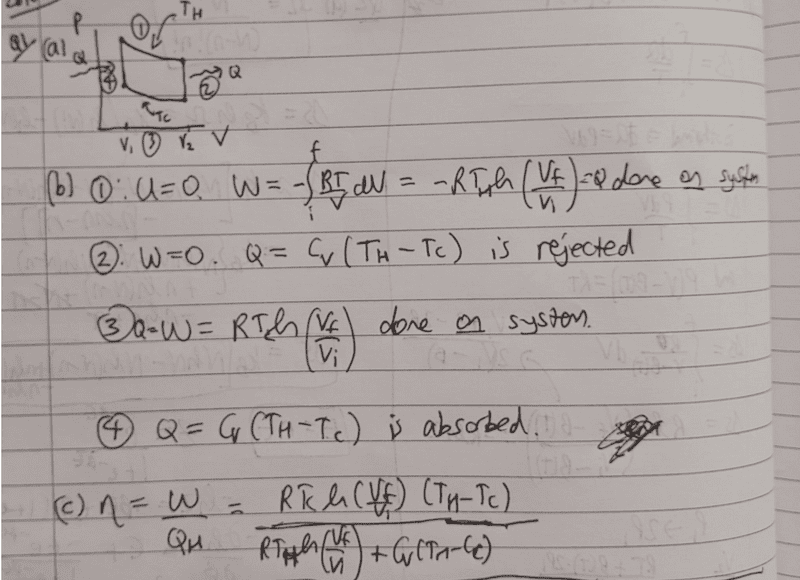 Q1 (a)
P ① T_H
Q ④ → Q ②
T_C
V₁ ③ V₂ V
(b) ①: U=0. W = -∫_i^f RT/V dV = -RT_H ln(V_f/V_i) = Q done on system
②: W=0. Q = C_V (T_H - T_C) is rejected
③ Q=W = RT_C ln(V_f/V_i) done on system.
④ Q = C_V (T_H - T_C) is absorbed.
(c) η = W/Q_H = RT_C ln(V_f/V_i) (T_H - T_C) / RT_H ln(V_f/V_i) + C_V (T_H - T_C)